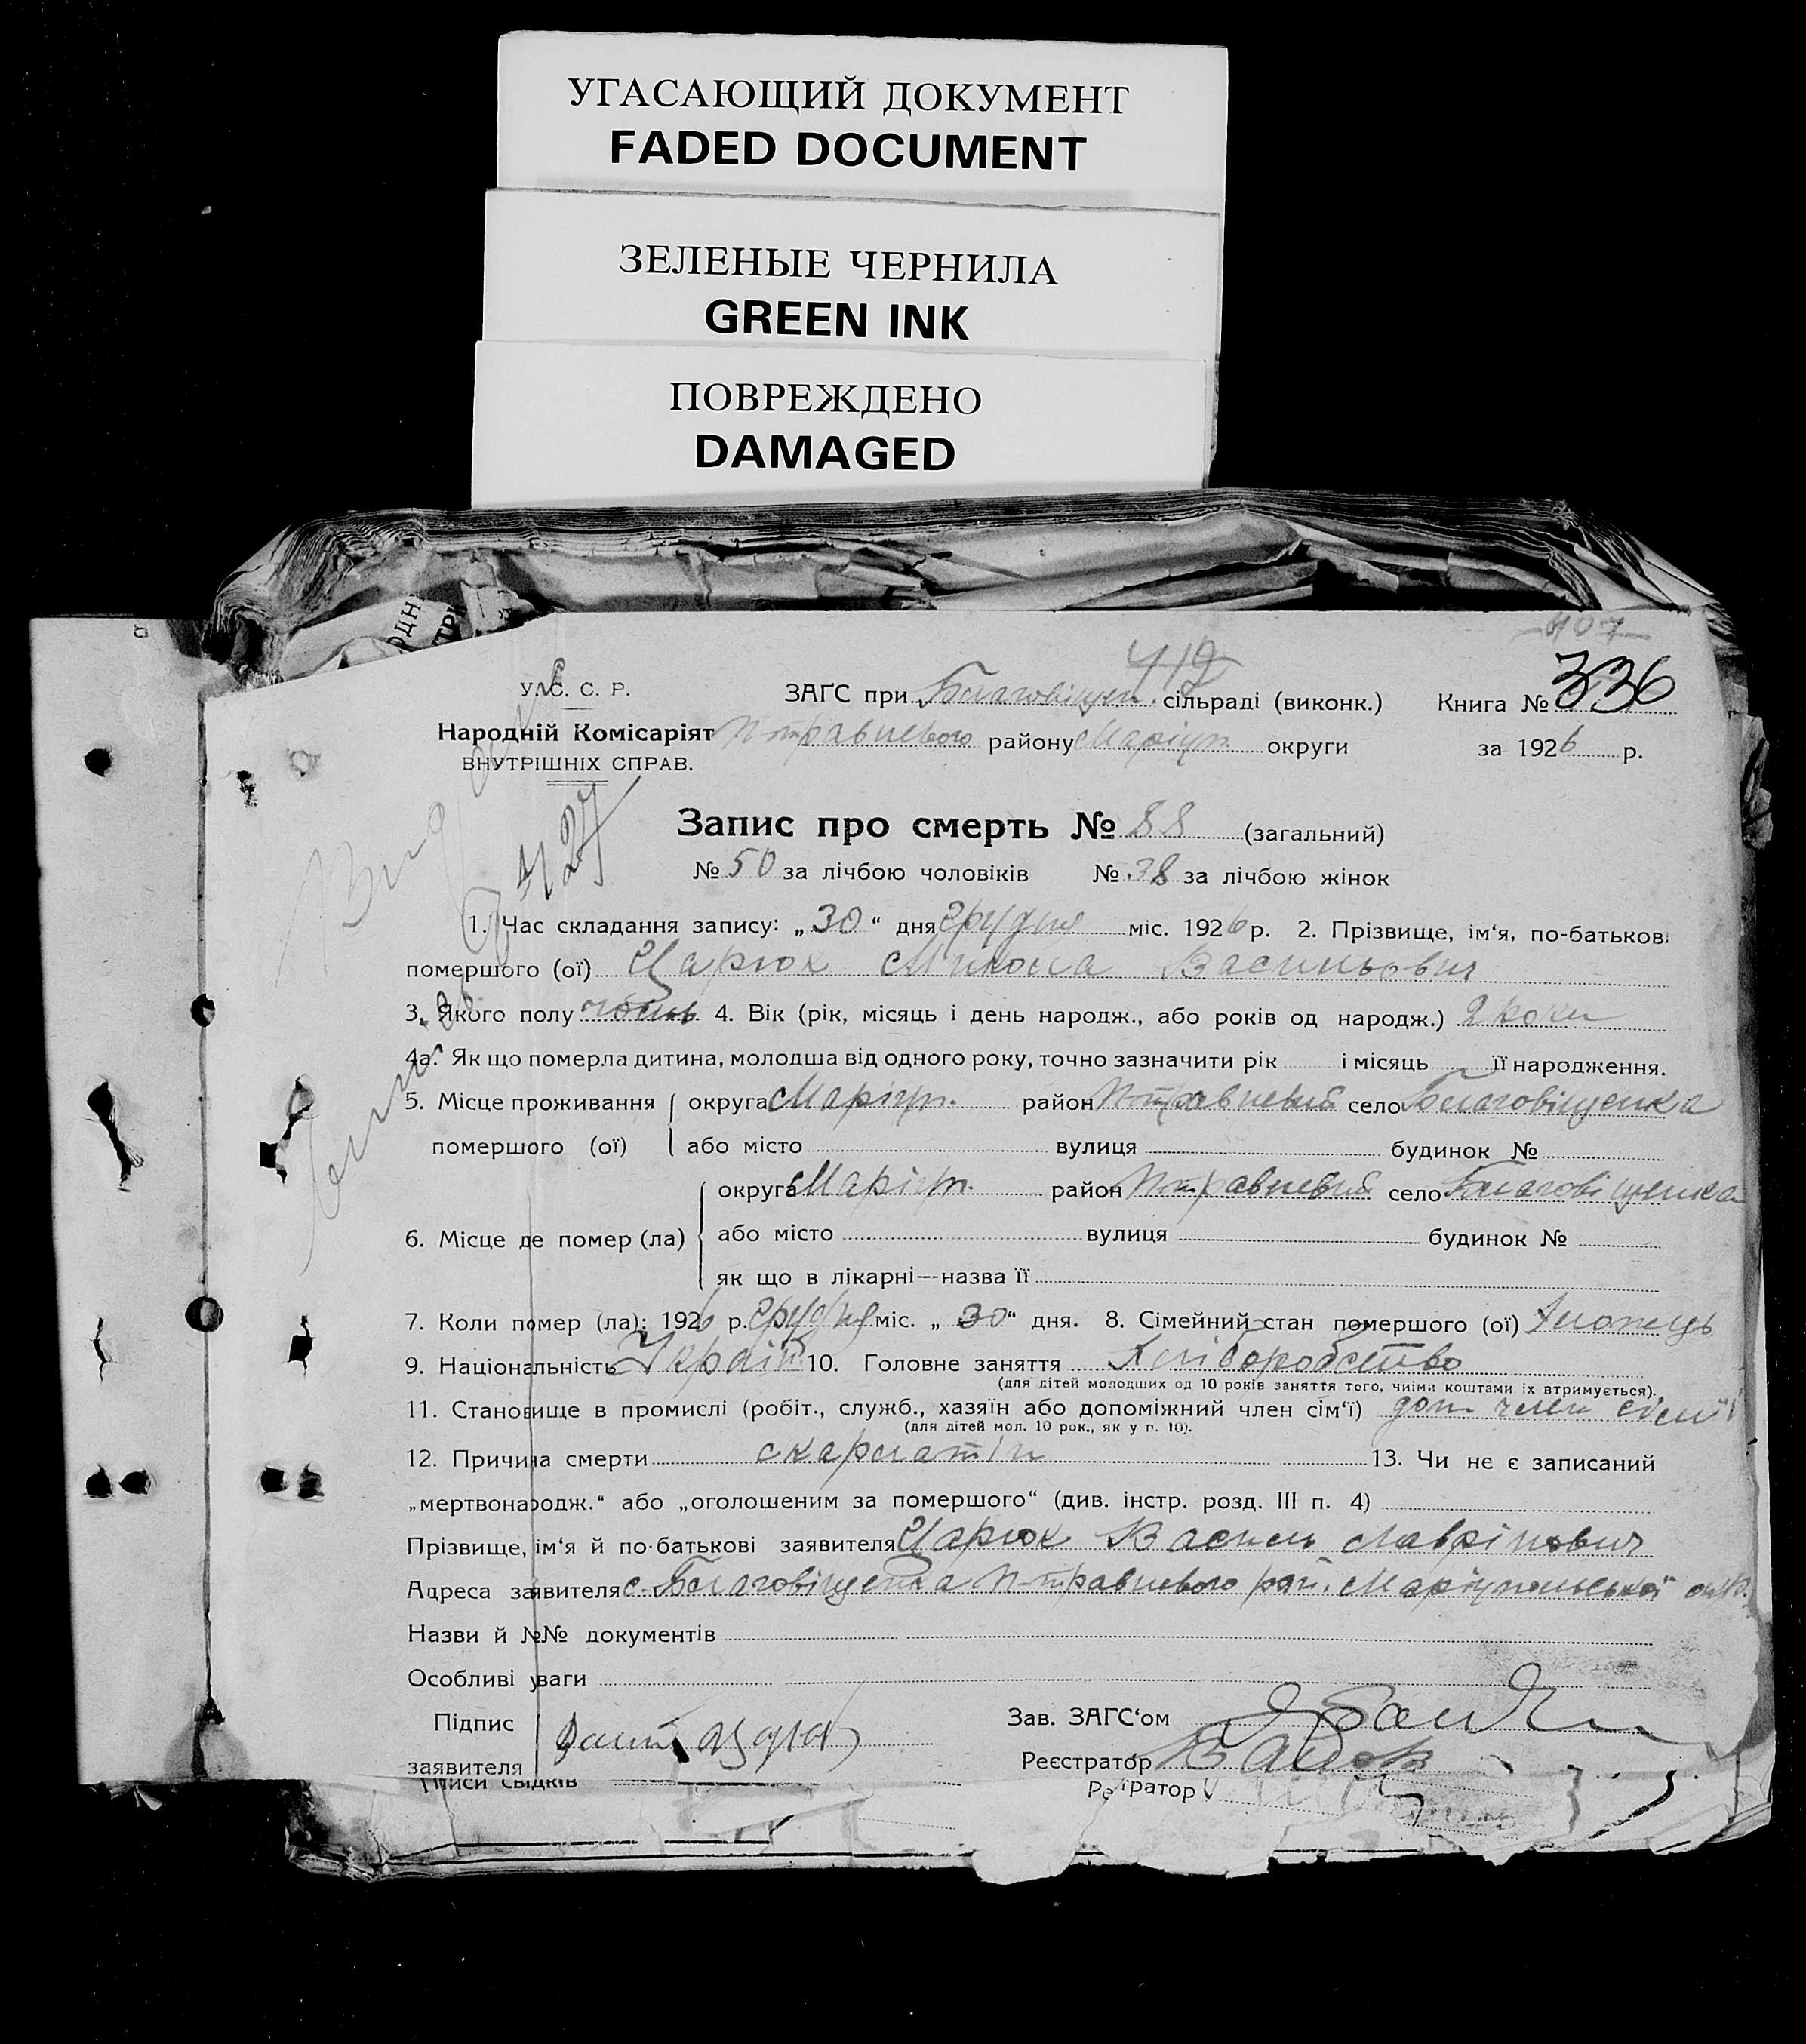 УГАСАЮЩИЙ ДОКУМЕНТ
FADED DOCUMENT
ЗЕЛЕНЫЕ ЧЕРНИЛА
GREEN INK
ПОВРЕЖДЕНО
DAMAGED
407
У. С. С. Р.
ЗАГС при Благовіщен. сільраді (виконк.) Книга № 336
Народній Комісаріят П-травневого району Маріуп. округи за 1926 р.
ВНУТРІШНІХ СПРАВ.
Запис про смерть № 88 (загальний)
№ 50 за лічбою чоловіків № 38 за лічбою жінок
1. Час складання запису: „30“ дня грудня міс. 1926 р. 2. Прізвище, ім‘я, по-батькові
помершого (ої) Царюк Микола Васильович
3. Якого полу 4. Вік (рік, місяць і день народж., або років од народж.) 2 роки
4а. Як що померла дитина, молодша від одного року, точно зазначити рік і місяць її народження.
5. Місце проживання округа Маріуп. район П-травневий село Благовіщенка
помершого (ої) або місто вулиця будинок №
округа Маріуп. район П-травневий село Благовіщенка
6. Місце де помер (ла) або місто вулиця будинок №
як що в лікарні—назва її
7. Коли помер (ла): 1926 р. грудня міс. „30“ дня. 8. Сімейний стан помершого (ої) хлопець
9. Національність Україн. 10. Головне заняття Хліборобство
(для дітей молодших од 10 років заняття того, чиїми коштами їх втримується).
11. Становище в промислі (робіт., служб., хазяїн або допоміжний член сім‘ї) доп. член сім'ї
(для дітей мол. 10 рок., як у п. 10).
12. Причина смерти скарлатін 13. Чи не є записаний
„мертвонародж.“ або „оголошеним за помершого“ (див. інстр. розд. III п. 4)
Прізвище, ім‘я й по-батькові заявителя Царюк Василь Лаврінович
Адреса заявителя с. Благовіщенка П-травневого рай. Маріупольської окр.
Назви й №№ документів
Особливі уваги
Підпис
Зав. ЗАГС‘ом
заявителя
Реєстратор
Підписи свідків
Реєстратор